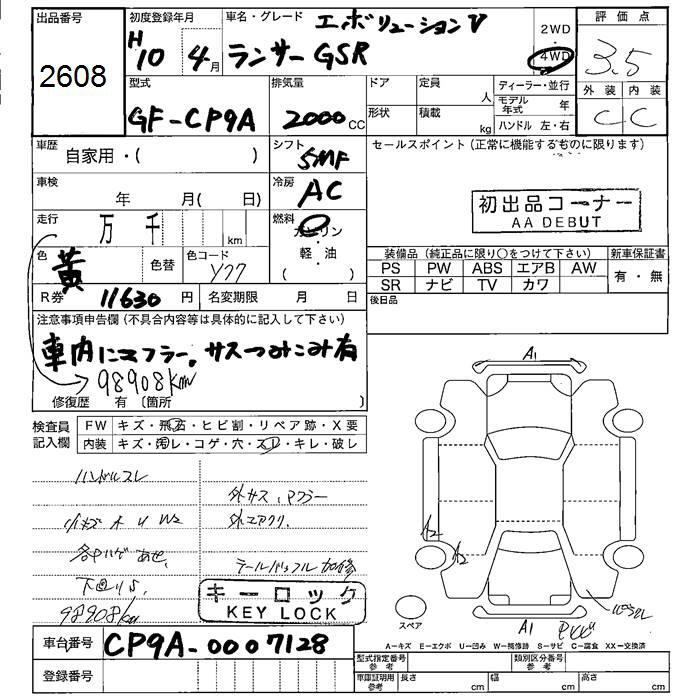 出品番号
2608
初度登録年月
H10 4月
車名・グレード エボリューションV
ランサーGSR
2WD
・
4WD
評価点
3.5
外装 内装
C C
型式
GF-CP9A
排気量
2000CC
ドア
形状
定員
人
積載
kg
ディーラー・並行
モデル年式 年
ハンドル 左・右
車歴
自家用・( )
シフト
5MF
セールスポイント(正常に機能するものに限ります)
車検
年 月( 日)
冷房
AC
初出品コーナー
AA DEBUT
走行
万 千 km
燃料
ガソリン
・
軽・油
( )
色
黄
色替
色コード
Y77
装備品(純正品に限り○をつけて下さい)
新車保証書
PS PW ABS エアB AW
有・無
SR ナビ TV カワ
R券 11630円
名変期限 月 日
後日品
注意事項申告欄(不具合内容等は具体的に記入して下さい)
車内にマフラー。サスつみこみ有
98908km
修復歴 有 〔箇所 〕
検査員
記入欄
FW キズ・飛石・ヒビ割・リペア跡・X要
内装 キズ・汚レ・コゲ・穴・スレ・キレ・破レ
ハンドルスレ
外サス、マフラー
小キズ A U W2
外エアクリ.
各中ハゲあせ、
テールバッフル加修
下回りS.
98908km
キーロック
KEY LOCK
A1
A2
A2
A1
スペア
A=キズ E=エクボ U=凹み W=補修跡 S=サビ C=腐食 XX=交換済
車台番号 CP9A-0007128
登録番号
型式指定番号
参考
類別区分番号
参考
車庫証明用
参考
長さ cm
幅 cm
高さ cm